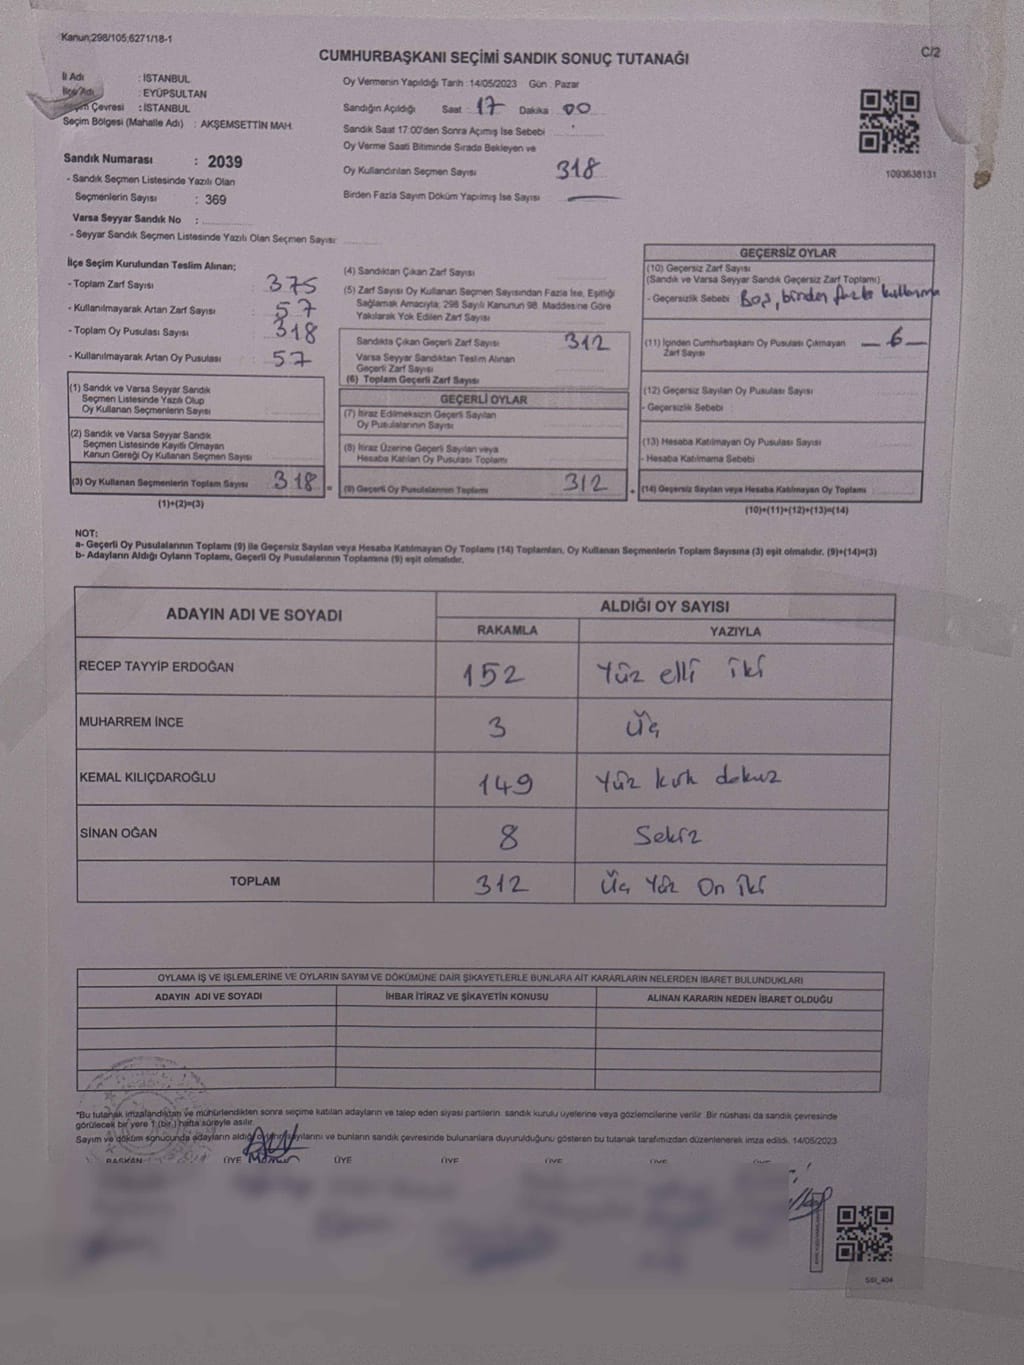 Kanun;298/105;6271/18-1
C/2
CUMHURBAŞKANI SEÇİMİ SANDIK SONUÇ TUTANAĞI
İl Adı : İSTANBUL
İlçe Adı : EYÜPSULTAN
Seçim Çevresi : İSTANBUL
Seçim Bölgesi (Mahalle Adı) : AKŞEMSETTİN MAH.
Sandık Numarası : 2039
- Sandık Seçmen Listesinde Yazılı Olan
Seçmenlerin Sayısı : 369
Varsa Seyyar Sandık No :
- Seyyar Sandık Seçmen Listesinde Yazılı Olan Seçmen Sayısı:
Oy Vermenin Yapıldığı Tarih :14/05/2023 Gün : Pazar
Sandığın Açıldığı Saat : 17 Dakika 00
Sandık Saat 17:00'den Sonra Açılmış İse Sebebi
Oy Verme Saati Bitiminde Sırada Bekleyen ve
Oy Kullandırılan Seçmen Sayısı 318
Birden Fazla Sayım Döküm Yapılmış İse Sayısı
1093638131
İlçe Seçim Kurulundan Teslim Alınan;
- Toplam Zarf Sayısı : 375
- Kullanılmayarak Artan Zarf Sayısı : 57
- Toplam Oy Pusulası Sayısı : 318
- Kullanılmayarak Artan Oy Pusulası : 57
(1) Sandık ve Varsa Seyyar Sandık
Seçmen Listesinde Yazılı Olup
Oy Kullanan Seçmenlerin Sayısı
(2) Sandık ve Varsa Seyyar Sandık
Seçmen Listesinde Kayıtlı Olmayan
Kanun Gereği Oy Kullanan Seçmen Sayısı
(3) Oy Kullanan Seçmenlerin Toplam Sayısı 318
(1)+(2)=(3)
(4) Sandıktan Çıkan Zarf Sayısı
(5) Zarf Sayısı Oy Kullanan Seçmen Sayısından Fazla İse, Eşitliği
Sağlamak Amacıyla; 298 Sayılı Kanunun 98. Maddesine Göre
Yakılarak Yok Edilen Zarf Sayısı
Sandıkta Çıkan Geçerli Zarf Sayısı 312
Varsa Seyyar Sandıktan Teslim Alınan
Geçerli Zarf Sayısı
(6) Toplam Geçerli Zarf Sayısı
GEÇERLİ OYLAR
(7) İtiraz Edilmeksizin Geçerli Sayılan
Oy Pusulalarının Sayısı
(8) İtiraz Üzerine Geçerli Sayılan veya
Hesaba Katılan Oy Pusulası Toplamı
= (9) Geçerli Oy Pusulalarının Toplamı 312
GEÇERSİZ OYLAR
(10) Geçersiz Zarf Sayısı
(Sandık ve Varsa Seyyar Sandık Geçersiz Zarf Toplamı)
- Geçersizlik Sebebi Boş, birden fazla kullanma
(11) İçinden Cumhurbaşkanı Oy Pusulası Çıkmayan
Zarf Sayısı — 6 —
(12) Geçersiz Sayılan Oy Pusulası Sayısı
- Geçersizlik Sebebi :
(13) Hesaba Katılmayan Oy Pusulası Sayısı
- Hesaba Katılmama Sebebi
+ (14) Geçersiz Sayılan veya Hesaba Katılmayan Oy Toplamı
(10)+(11)+(12)+(13)=(14)
NOT:
a- Geçerli Oy Pusulalarının Toplamı (9) ile Geçersiz Sayılan veya Hesaba Katılmayan Oy Toplamı (14) Toplamları, Oy Kullanan Seçmenlerin Toplam Sayısına (3) eşit olmalıdır. (9)+(14)=(3)
b- Adayların Aldığı Oyların Toplamı, Geçerli Oy Pusulalarının Toplamına (9) eşit olmalıdır.
ADAYIN ADI VE SOYADI
ALDIĞI OY SAYISI
RAKAMLA YAZIYLA
RECEP TAYYİP ERDOĞAN 152 Yüz elli iki
MUHARREM İNCE 3 Üç
KEMAL KILIÇDAROĞLU 149 Yüz kırk dokuz
SİNAN OĞAN 8 Sekiz
TOPLAM 312 Üç Yüz On iki
OYLAMA İŞ VE İŞLEMLERİNE VE OYLARIN SAYIM VE DÖKÜMÜNE DAİR ŞİKAYETLERLE BUNLARA AİT KARARLARIN NELERDEN İBARET BULUNDUKLARI
ADAYIN ADI VE SOYADI İHBAR İTİRAZ VE ŞİKAYETİN KONUSU ALINAN KARARIN NEDEN İBARET OLDUĞU
*Bu tutanak imzalandıktan ve mühürlendikten sonra seçime katılan adayların ve talep eden siyasi partilerin sandık kurulu üyelerine veya gözlemcilerine verilir. Bir nüshası da sandık çevresinde
görülecek bir yere 1 (bir) hafta süreyle asılır.
Sayım ve döküm sonucunda adayların aldığı oyların sayılarını ve bunların sandık çevresinde bulunanlara duyurulduğunu gösteren bu tutanak tarafımızdan düzenlenerek imza edildi. 14/05/2023
BAŞKAN ÜYE ÜYE ÜYE ÜYE ÜYE ÜYE
SSI_404